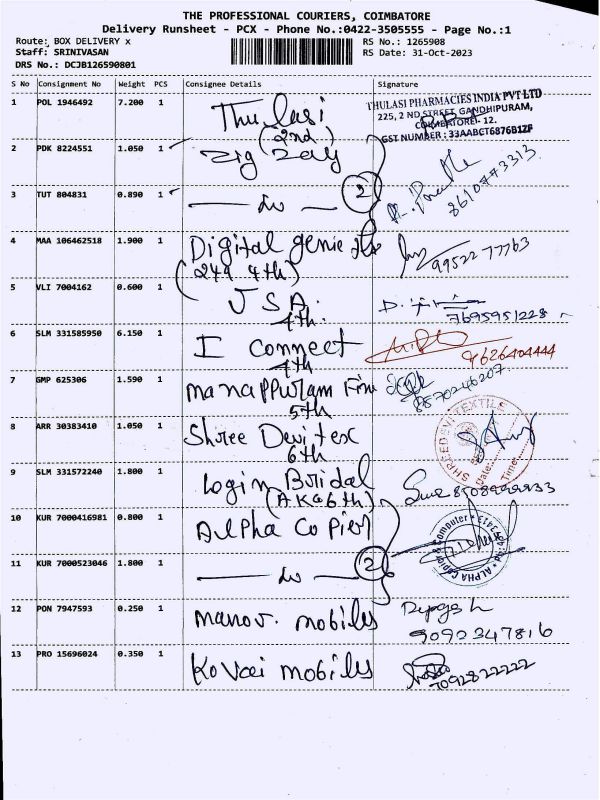 THE PROFESSIONAL COURIERS, COIMBATORE
Delivery Runsheet - PCX - Phone No.:0422-3505555 - Page No.:1
Route: BOX DELIVERY x
RS No.: 1265908
Staff: SRINIVASAN
RS Date: 31-Oct-2023
DRS No.: DCJB126590801
S No Consignment No Weight PCS Consignee Details Signature
1 POL 1946492 7.200 1 Thulasi
(2nd)
THULASI PHARMACIES INDIA PVT LTD
225, 2 ND STREET, GANDHIPURAM,
COIMBATORE - 12.
GST NUMBER : 33AABCT6876B1ZF
2 PDK 8224551 1.050 1 Zig Zag
3 TUT 804831 0.890 1 — do — 2
8610773313
4 MAA 106462518 1.900 1 Digital genie
(249 4th)
99522 77763
5 VLI 7004162 0.600 1 JSA
4th
7695951228
6 SLM 331585950 6.150 1 I connect
4th
9626404444
7 GMP 625306 1.590 1 Manappuram Fin
5th
8870246207
8 ARR 30383410 1.050 1 Shree Devi tex
6th
SHREE DEVI TEXTILE
Date:
Time:
9 SLM 331572240 1.800 1 Login Bridal
(AKG 6th)
10 KUR 7000416981 0.800 1 Alpha Copier
ALPHA Copier & Computer
11 KUR 7000523046 1.800 1 — do — 2
12 PON 7947593 0.250 1 manov. mobiles
9092347816
13 PRO 15696024 0.350 1 Kovai mobiles
7092822222